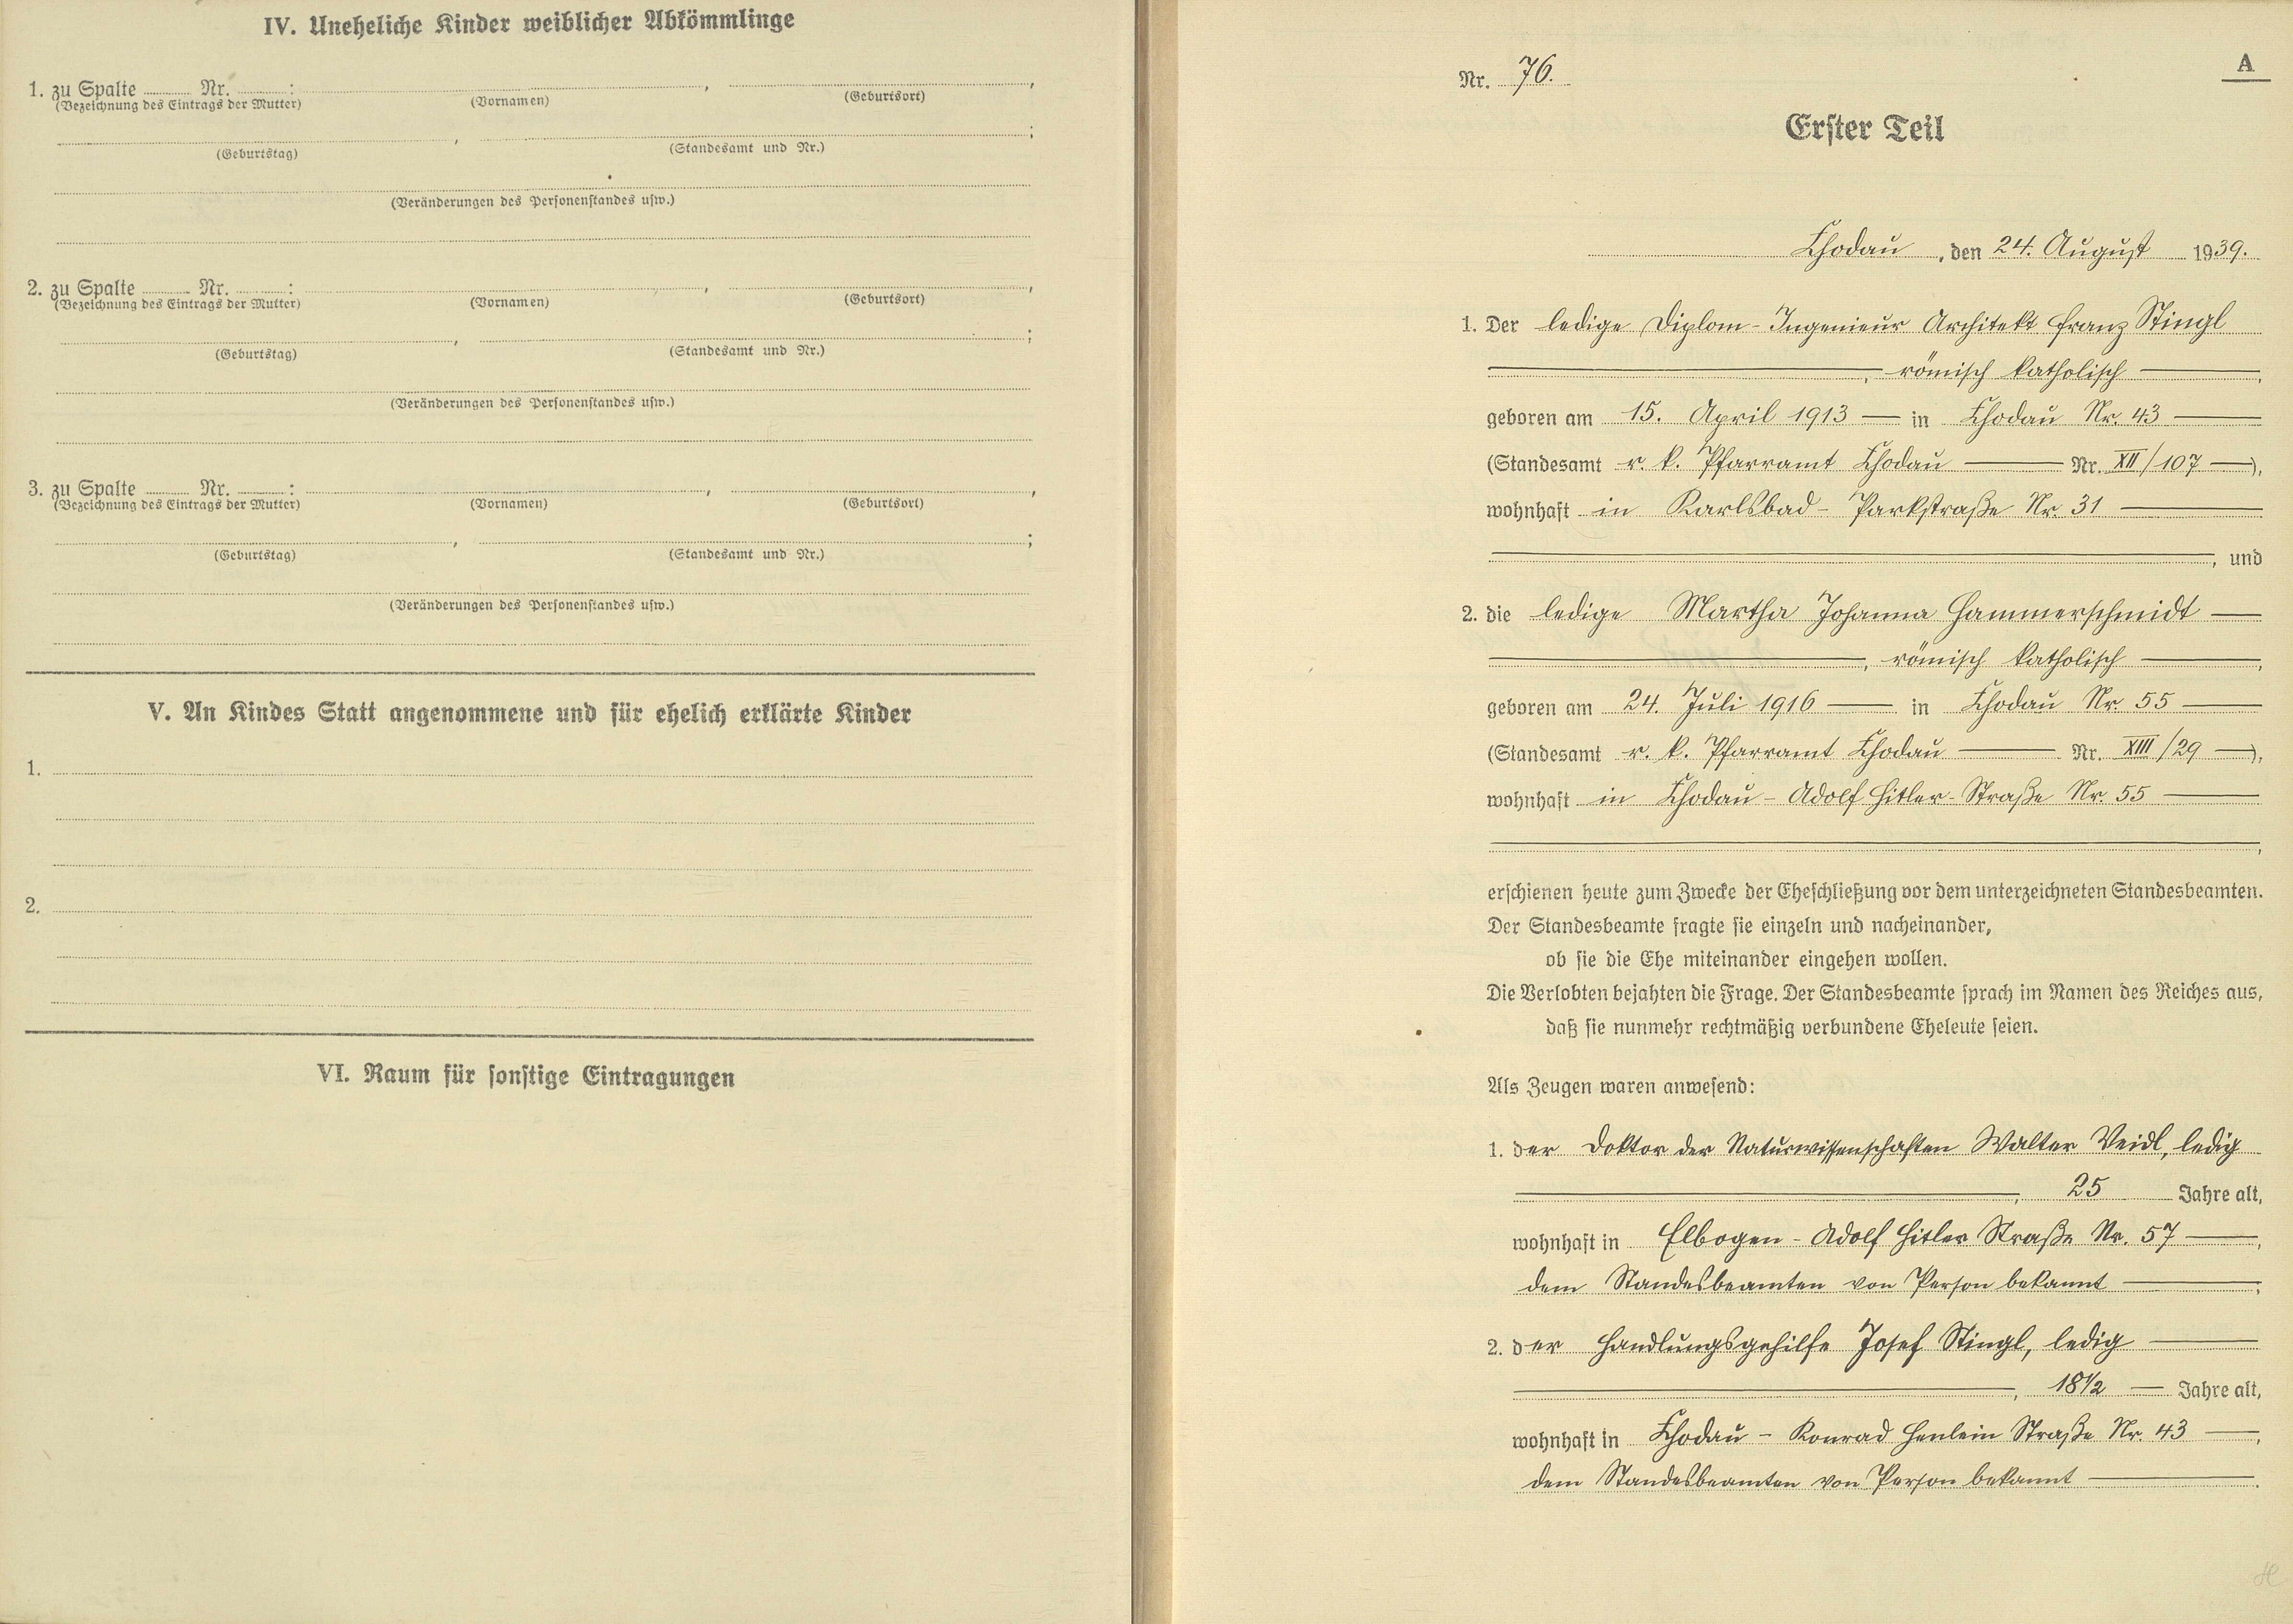 IV. Uneheliche Kinder weiblicher Abkömmlinge
1. zu Spalte ........ Nr. ........ : , ,
(Bezeichnung des Eintrags der Mutter) (Vornamen) (Geburtsort)
, ;
(Geburtstag) (Standesamt und Nr.)
(Veränderungen des Personenstandes usw.)
2. zu Spalte ........ Nr. ........ : , ,
(Bezeichnung des Eintrags der Mutter) (Vornamen) (Geburtsort)
, ;
(Geburtstag) (Standesamt und Nr.)
(Veränderungen des Personenstandes usw.)
3. zu Spalte ........ Nr. ........ : , ,
(Bezeichnung des Eintrags der Mutter) (Vornamen) (Geburtsort)
, ;
(Geburtstag) (Standesamt und Nr.)
(Veränderungen des Personenstandes usw.)
V. An Kindes Statt angenommene und für ehelich erklärte Kinder
1.
2.
VI. Raum für sonstige Eintragungen
A
Nr. 76.
Erster Teil
Chodau, den 24. August 1939.
1. Der ledige Diplom-Ingenieur Architekt Franz Stingl
, römisch katholisch ,
geboren am 15. April 1913 — in Chodau Nr. 43 —
(Standesamt r. k. Pfarramt Chodau — Nr. XII/107 —),
wohnhaft in Karlsbad - Parkstraße Nr. 31 —
, und
2. die ledige Martha Johanna Hammerschmidt —
, römisch katholisch — ,
geboren am 24. Juli 1916 — in Chodau Nr. 55 —
(Standesamt r. k. Pfarramt Chodau — Nr. XIII/29 —),
wohnhaft in Chodau - Adolf Hitler-Straße Nr. 55 —
,
erschienen heute zum Zwecke der Eheschließung vor dem unterzeichneten Standesbeamten.
Der Standesbeamte fragte sie einzeln und nacheinander,
ob sie die Ehe miteinander eingehen wollen.
Die Verlobten bejahten die Frage. Der Standesbeamte sprach im Namen des Reiches aus,
daß sie nunmehr rechtmäßig verbundene Eheleute seien.
Als Zeugen waren anwesend:
1. der Doktor der Naturwissenschaften Walter Veidl, ledig
, 25 Jahre alt,
wohnhaft in Elbogen - Adolf Hitler Straße Nr. 57 — ,
dem Standesbeamten von Person bekannt — ;
2. der Handlungsgehilfe Josef Stingl, ledig —
, 18½ — Jahre alt,
wohnhaft in Chodau - Konrad Henlein Straße Nr. 43 — ,
dem Standesbeamten von Person bekannt — .